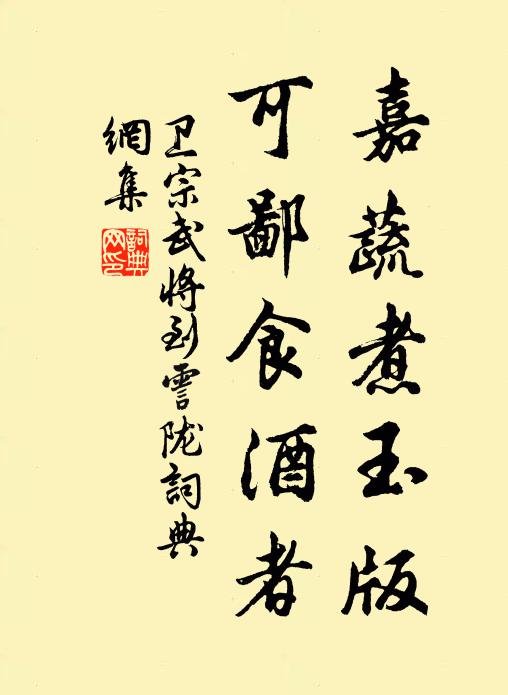 嘉蔬煮玉版
可鄙食酒者
卫宗武將到霅陇詞典
網集
詞典
网印